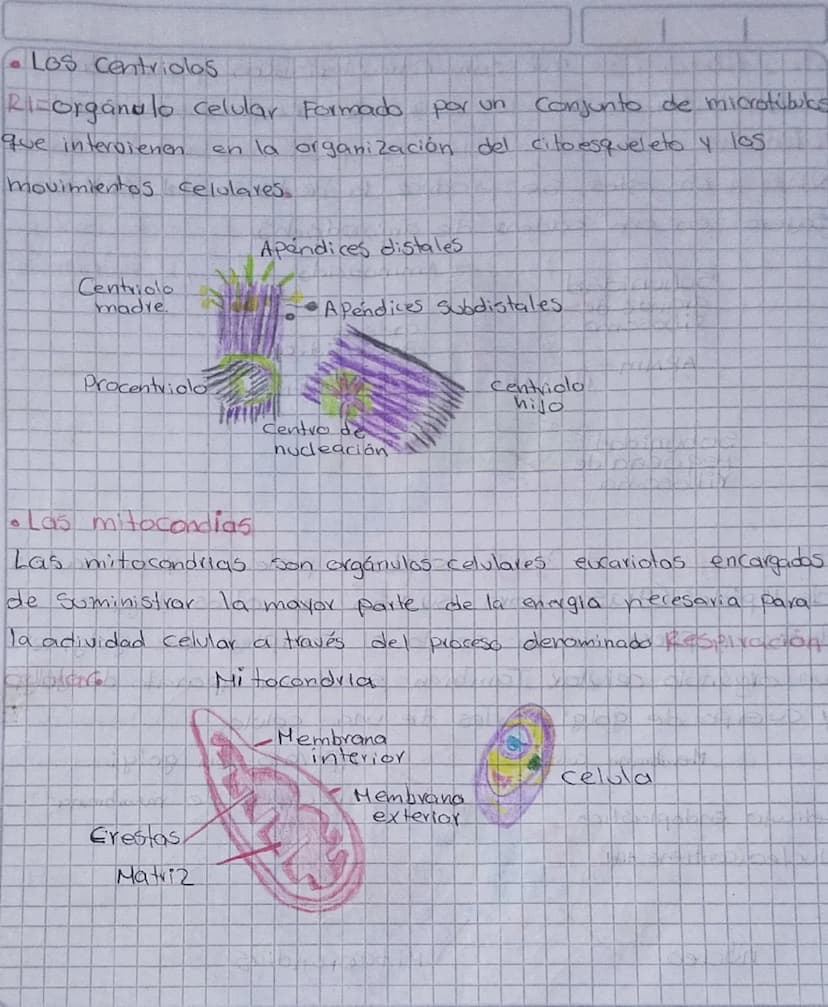 • Los centriolos
R/= orgánulo celular Formado por un conjunto de microtúbulos
que intervienen en la organización del citoesqueleto y los
movimientos celulares.
Apéndices distales
Centriolo
madre.
Apéndices subdistales
Procentriolo
Centriolo
hijo
Centro de
nucleación
• Las mitocondias
Las mitocondrias son orgánulos celulares eucariotas encargados
de suministrar la mayor parte de la energía necesaria para
la actividad celular a través del proceso denominado Respiración
celular.
Mitocondria
Membrana
interior
Membrana
exterior
Crestas
Matriz
celula